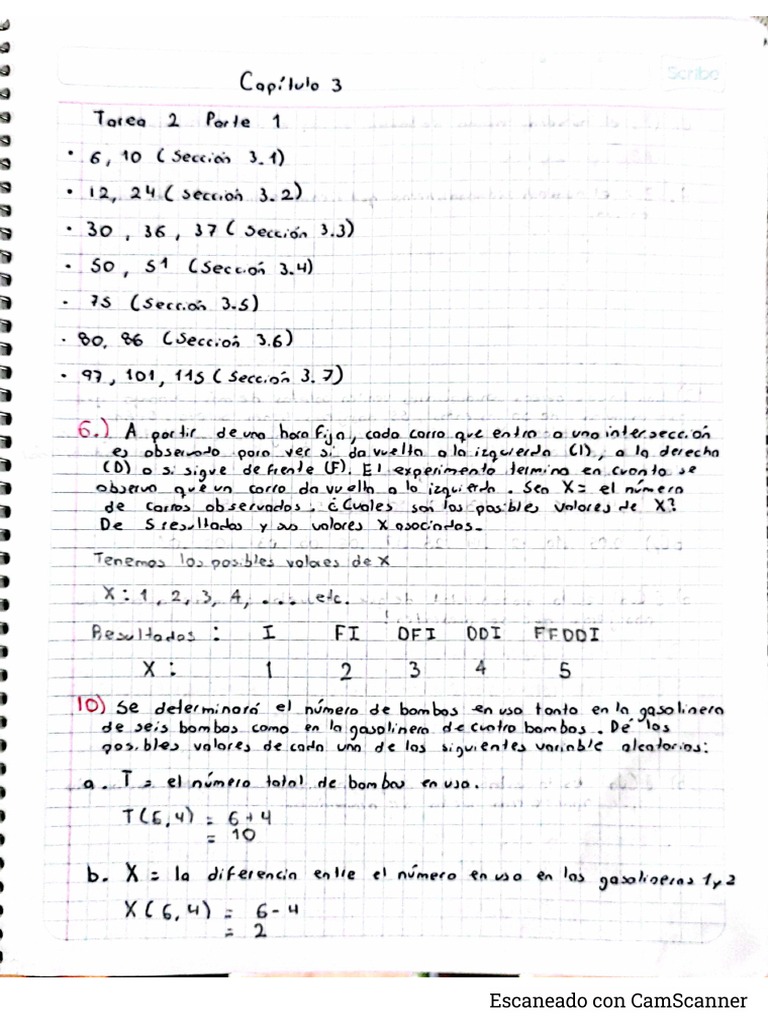 Scribe
Capítulo 3
Tarea 2 Parte 1
• 6, 10 (Sección 3.1)
• 12, 24 (sección 3.2)
• 30, 36, 37 (Sección 3.3)
• 50, 51 (Sección 3.4)
• 75 (Sección 3.5)
• 80, 86 (Sección 3.6)
• 97, 101, 115 (Sección 3.7)
6.) A partir de una hora fija, cada carro que entra a una intersección
es observado para ver si da vuelta a la izquierda (I), a la derecha
(D) o si sigue de frente (F). El experimento termina en cuanto se
observa que un carro da vuelta a la izquierda. Sea X= el número
de carros observados. ¿Cuales son los posibles valores de X?
De 5 resultados y sus valores X asociados.
Tenemos los posibles valores de X
X: 1, 2, 3, 4, .... etc.
Resultados : I FI DFI DDI FFDDI
X : 1 2 3 4 5
10) Se determinará el número de bombas en uso tanto en la gasolinera
de seis bombas como en la gasolinera de cuatro bombas. Dé los
posibles valores de cada una de las siguientes variable aleatorias:
a. T = el número total de bombas en uso.
T(6,4) = 6+4
= 10
b. X = la diferencia entre el número en uso en las gasolineras 1 y 2
X(6,4) = 6-4
= 2
Escaneado con CamScanner